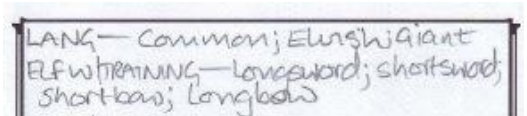 LANG — Common; Elvish; Giant
ELF W/TRAINING — Longsword; shortsword;
shortbow; Longbow